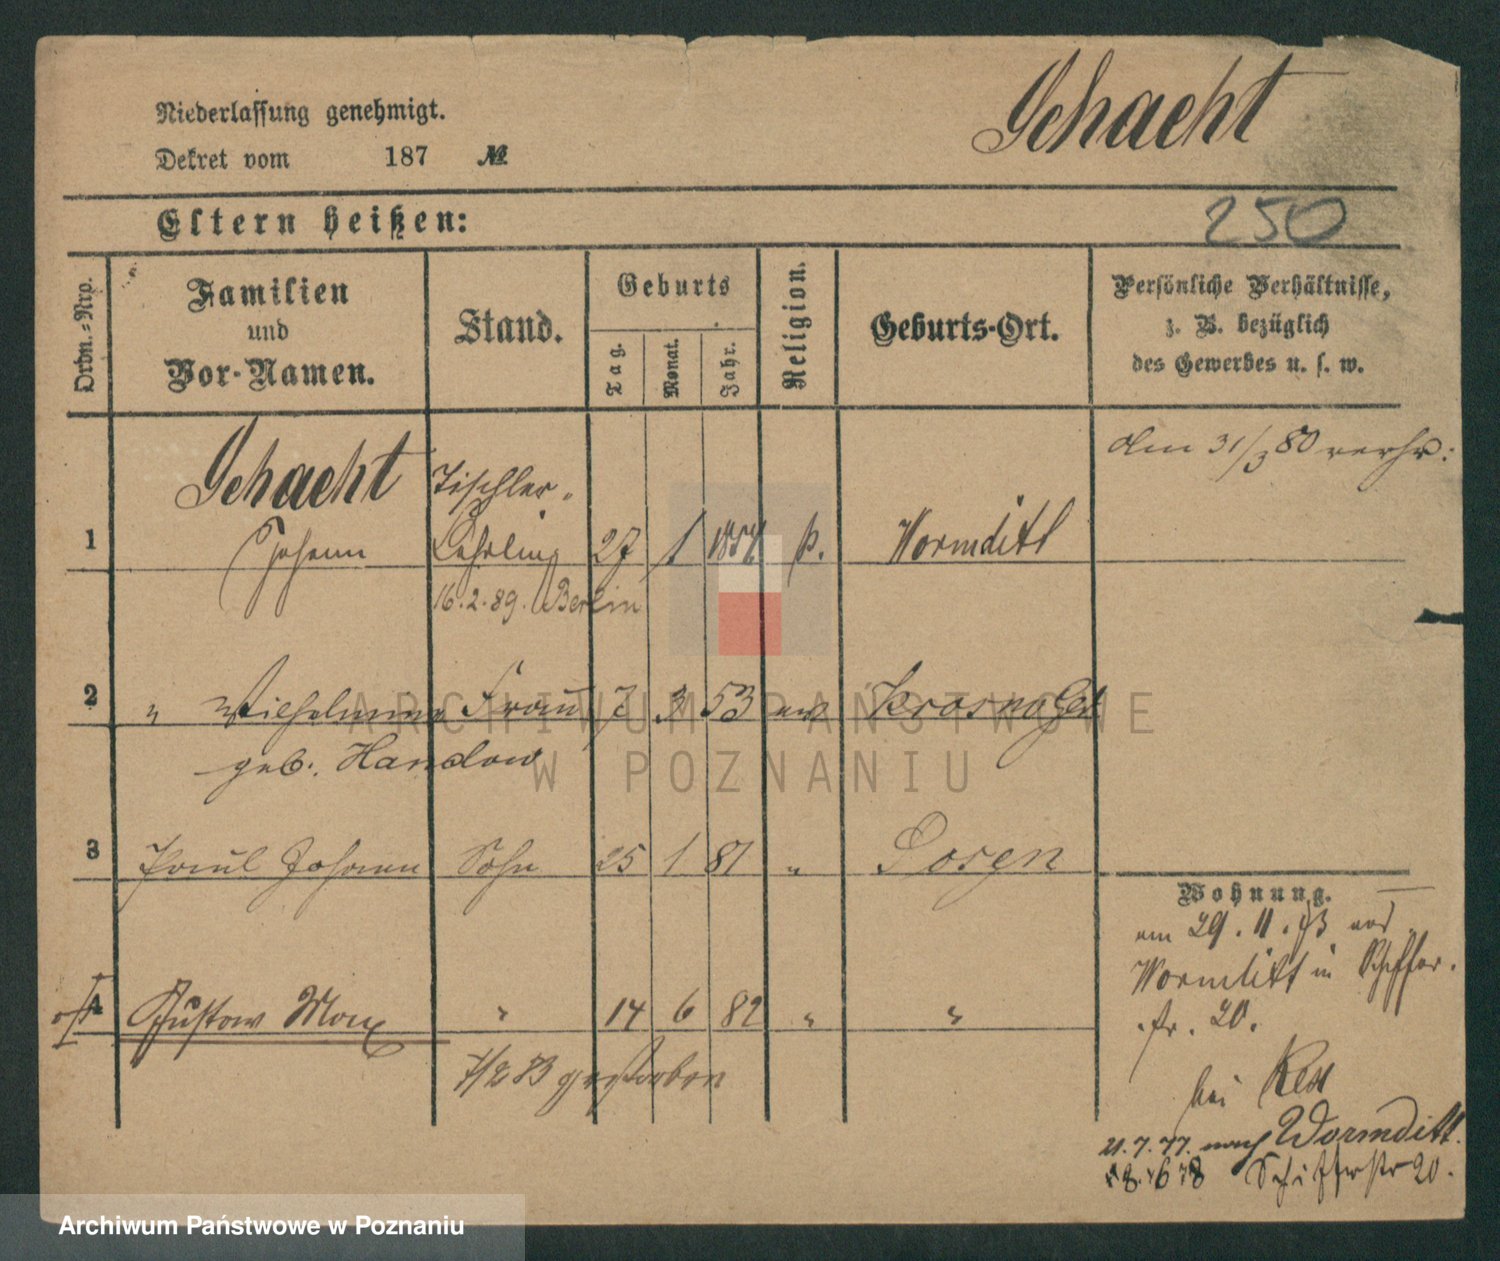 Schacht
Niederlassung genehmigt.
Dekret vom 187 №
Eltern heißen:
250
Ordn.-Nro.
Familien
und
Vor-Namen.
Stand.
Geburts
Tag.
Monat.
Jahr.
Religion.
Geburts-Ort.
Persönliche Verhältnisse,
z. B. bezüglich
des Gewerbes u. s. w.
den 31/3 80 verhr:
Schacht Tischler-
1 Johann Lehrling 27 1 185 Wormditt
16.2.89. Berlin
2 " Wilhelmine Frau 7 3 53 ev Krosno
geb. Handow
3 Paul Johann Sohn 25 1 81 " Posen
Wohnung.
am 29. 11. 73 aus
Wormditt in Schiffer-
str. 20.
4 Gustav Max " 14 6 82 " "
7/2 83 gestorben
bei
21.7.77. nach Wormditt.
Schifferstr 20.
ARCHIWUM PAŃSTWOWE
W POZNANIU
Archiwum Państwowe w Poznaniu